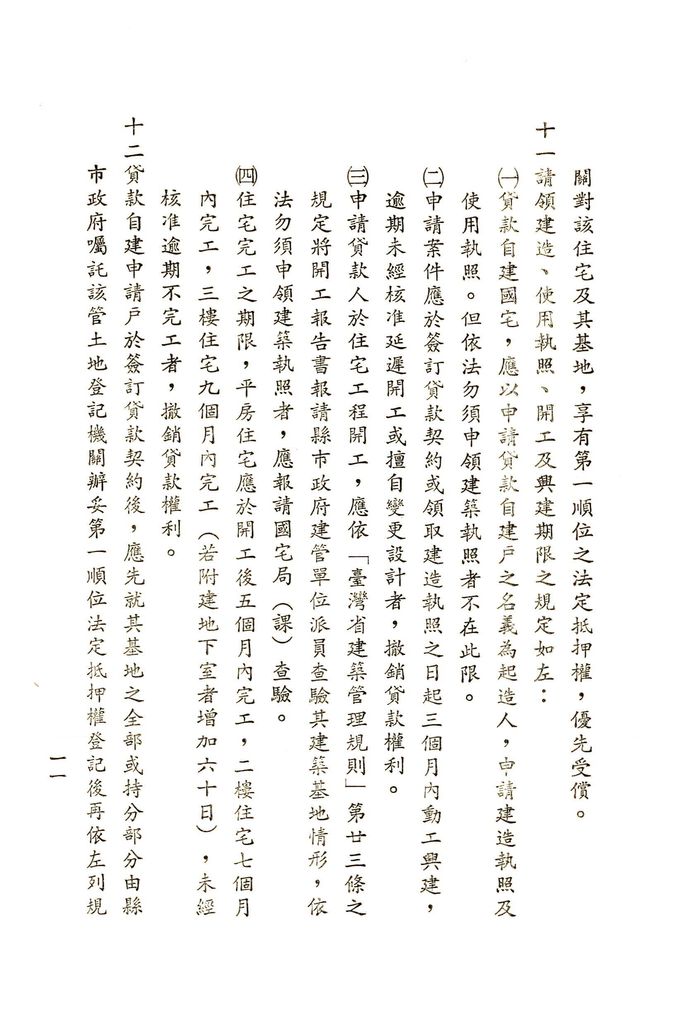 關對該住宅及其基地，享有第一順位之法定抵押權，優先受償。
十一請領建造、使用執照、開工及興建期限之規定如左：
㈠貸款自建國宅，應以申請貸款自建戶之名義為起造人，申請建造執照及
使用執照。但依法勿須申領建築執照者不在此限。
㈡申請案件應於簽訂貸款契約或領取建造執照之日起三個月內動工興建，
逾期未經核准延遲開工或擅自變更設計者，撤銷貸款權利。
㈢申請貸款人於住宅工程開工，應依「臺灣省建築管理規則」第廿三條之
規定將開工報告書報請縣市政府建管單位派員查驗其建築基地情形，依
法勿須申領建築執照者，應報請國宅局（課）查驗。
㈣住宅完工之期限，平房住宅應於開工後五個月內完工，二樓住宅七個月
內完工，三樓住宅九個月內完工（若附建地下室者增加六十日），未經
核准逾期不完工者，撤銷貸款權利。
十二貸款自建申請戶於簽訂貸款契約後，應先就其基地之全部或持分部分由縣
市政府囑託該管土地登記機關辦妥第一順位法定抵押權登記後再依左列規
一一